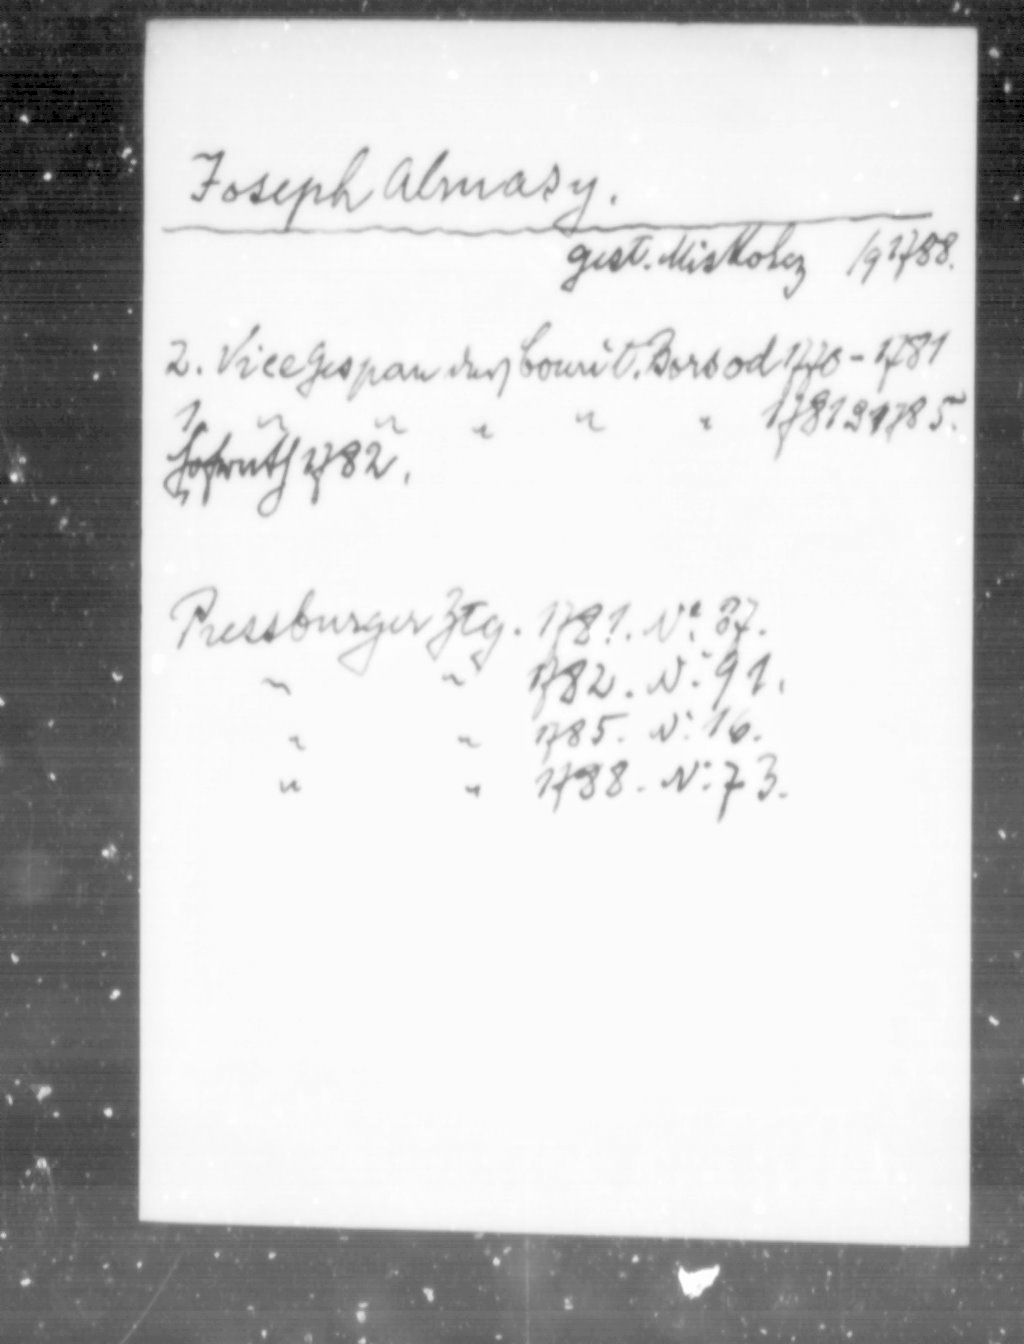 Joseph Almasy.
gest. Miskolcz /9 1788.
2. Vice Gespan des Comit. Borsod 1770 - 1781
1. " " " " " 1781 1785.
Hofrath 1782.
Pressburger Ztg. 1781. No. 37.
" " 1782. N: 91.
" " 1785. N: 16.
" " 1788. N: 73.